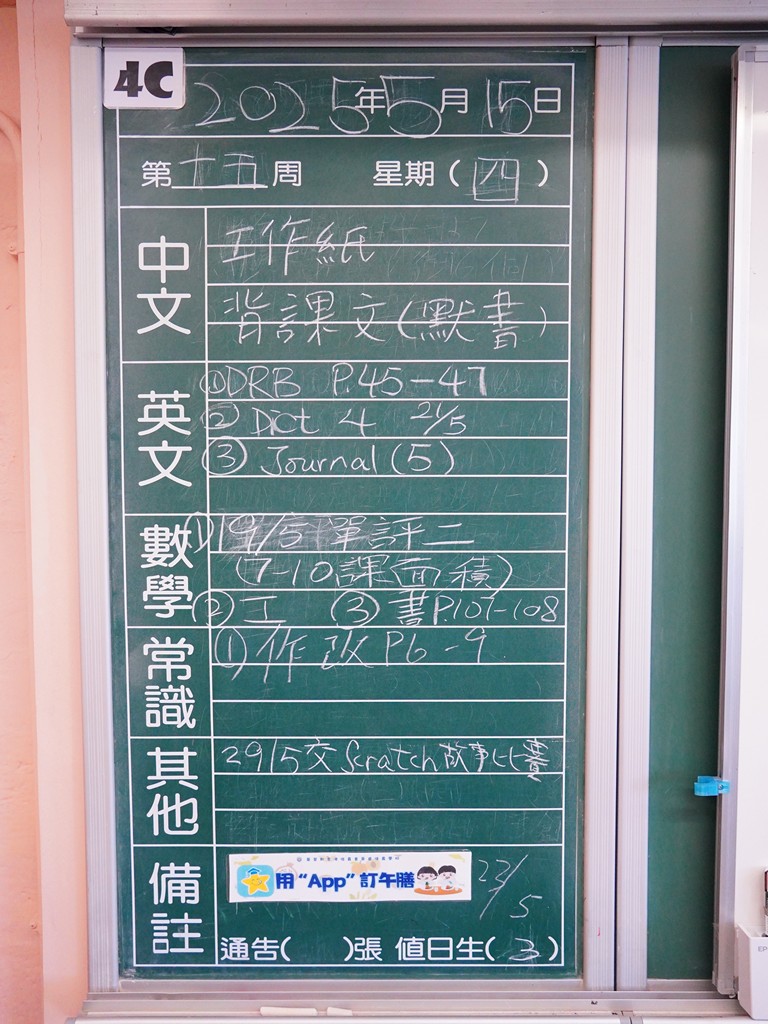 4C
2025年5月15日
第十五周 星期(四)
中文
工作紙
背課文(默書)
英文
①DRB P.45-47
② Dict 4 21/5
③ Journal (5)
數學
①19/5 單評二
(7-10課面積)
②工 ③書P.107-108
常識
①作改P6-9
其他
29/5交Scratch故事比賽
備註
用“App”訂午膳
23/5
通告( )張 值日生(3)
EP